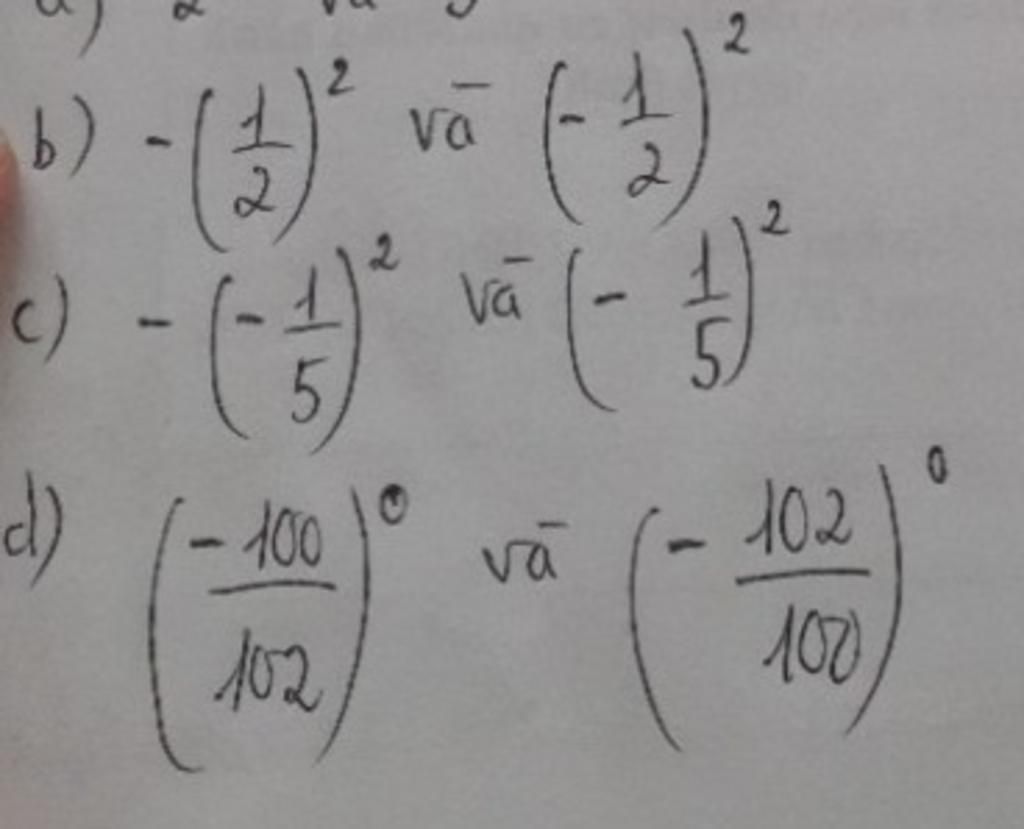 b) -(1/2)^2 và (-1/2)^2
c) -(-1/5)^2 và (-1/5)^2
d) (-100/102)^0 và (-102/100)^0